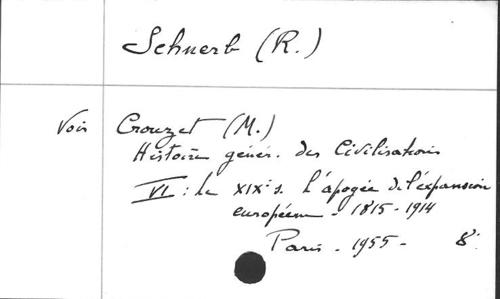 Schnerb (R.)
Voir Crouzet (M.)
Histoire génér. des Civilisations
VI : Le XIXe s. L'apogée de l'expansion
européenne - 1815-1914
Paris - 1955 - 8°